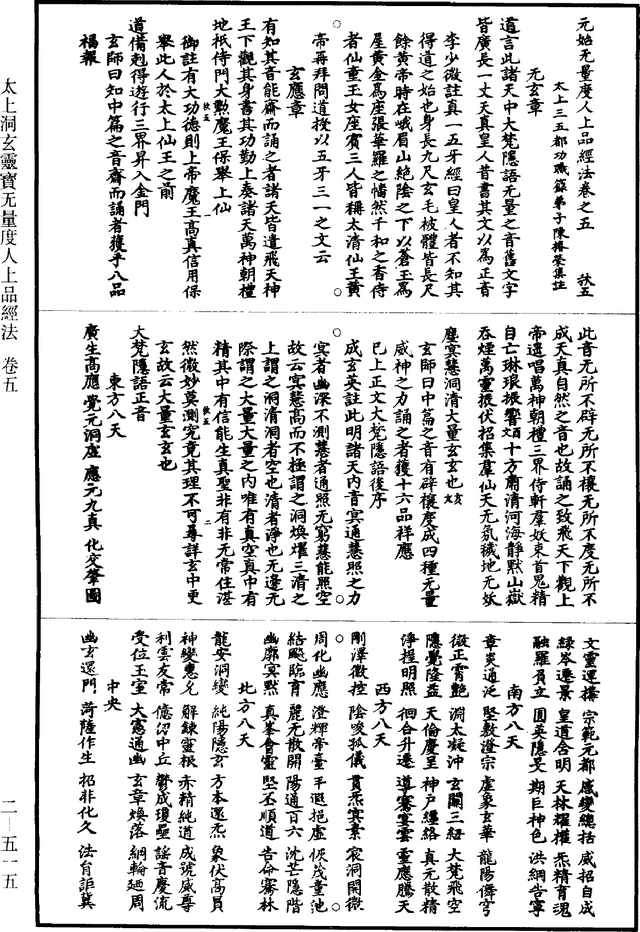 太上洞玄靈寶无量度人上品經法 卷五
二—五一五
元始无量度人上品經法卷之五 扶五
太上三五都功職籙弟子陳椿榮集註
无玄章
道言此諸天中大梵隱語无量之音舊文字
皆廣長一丈天真皇人昔書其文以為正音
李少微註真一五牙經曰皇人者不知其
得道之始也身長九尺玄毛被體皆長尺
餘黃帝時在峨眉山絕陰之下以蒼玉為
屋黃金為座張華羅之幡然千和之香侍
者仙童玉女座賓三人皆稱太清仙王黃
帝再拜問道授以五牙三一之文云
玄應章
有知其音能齋而誦之者諸天皆遣飛天神
王下觀其身書其功勤上奏諸天萬神朝禮
地祇侍門大勳魔王保舉上仙
御註有大功德則上帝魔王高真信用保
舉此人於太上仙王之前
道備剋得遊行三界昇入金門
玄師曰知中篇之音齋而誦者獲乎八品
福報
此音无所不辟无所不禳无所不度无所不
成天真自然之音也故誦之致飛天下觀上
帝遥唱萬神朝禮三界侍軒羣妖束首鬼精
自亡琳琅振響十方肅清河海靜默山嶽
吞煙萬靈振伏招集羣仙天无氛穢地无妖
塵冥慧洞清大量玄玄也
玄師曰中篇之音有辟禳度成四種无量
威神之力誦之者獲十六品祥應
已上正文大梵隱語後序
成玄英註此明諸天内音冥通慧照之力
冥者幽深不測慧者通照无窮慧能照空
故云冥慧高而不極謂之洞煥燿三清之
上謂之洞清洞者空也清者淨也无邊无
際謂之大量大量之内唯有真空真中有
精其中有信能生真聖非有非无常住湛
然微妙莫測究竟其理不可尋詳玄中更
玄故云大量玄玄也
大梵隱語正音
東方八天
廣生高應 覺元洞虛 應元九真 化交肇圖
文靈運攝 宗範元都 感變總括 威招自成
緑岑遷景 皇道含明 天林耀權 炁精育魂
融羅員立 圓英隱旻 期巨神色 洪網告寧
南方八天
章炎通泛 堅敷澄宗 虛象玄華 龍陽儛穹
微正霄艶 淵太凝沖 玄關三紐 大梵飛空
隱覺隆益 天倫慶呈 神戸運絡 真元散精
淨捏明照 徊合升遷 導騫雲雲 靈應騰天
西方八天
剛澤徽控 陰峻孤儀 貫炁冥素 宸洞開微
周化幽應 澄輝帝臺 平遐挹虛 恢茂童池
結飈臨育 麗无散開 陽通百六 沈芒隱階
幽廓冥默 真峯會靈 堅丕順道 告命騫林
北方八天
龍安洞變 純陽隱玄 方本還炁 象伏高員
神變惠允 解錬靈根 赤精純道 成號威尊
利雲友常 億沼中丘 鬱成瓊驅 謡音慶流
受位王室 大憲通幽 玄章煥落 綱輪廻周
中央
幽玄還門 菏薩作生 招非化久 法台詎冀